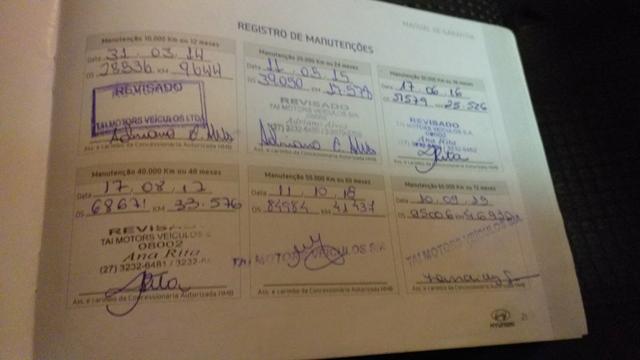 MANUAL DE GARANTIA
REGISTRO DE MANUTENÇÕES
Manutenção 10.000 Km ou 12 meses
Data 31 . 03 . 14
OS 28536 KM 9644
REVISADO
TAI MOTORS VEÍCULOS LTDA
Ass. e carimbo da Concessionária Autorizada HMB
Manutenção 20.000 Km ou 24 meses
Data 11 . 05 . 15
OS 39.050 KM 17.579
REVISADO
TAI MOTORS VEÍCULOS S/A
Adriano Alves
Ass. e carimbo da Concessionária Autorizada HMB
Manutenção 30.000 Km ou 36 meses
Data 17 . 06 . 16
OS 51579 KM 25.526
REVISADO
TAI MOTORS VEÍCULOS S.A.
08002
Ana Rita
Rita
Ass. e carimbo da Concessionária Autorizada HMB
Manutenção 40.000 Km ou 48 meses
Data 17 . 08 . 17
OS 68671 KM 33.576
TAI MOTORS VEÍCULOS S
08002
Ana Rita
(27) 3232-6481 / 3232-
Rita
Ass. e carimbo da Concessionária Autorizada HMB
Manutenção 50.000 Km ou 60 meses
Data 11 . 10 . 18
OS 84984 KM 41437
TAI MOTORS VEÍCULOS S/A
Ass. e carimbo da Concessionária Autorizada HMB
Manutenção 60.000 Km ou 72 meses
Data 10 . 09 . 19
OS
TAI MOTORS VEÍCULOS S.A
Ass. e carimbo da Concessionária Autorizada HMB
HYUNDAI
21